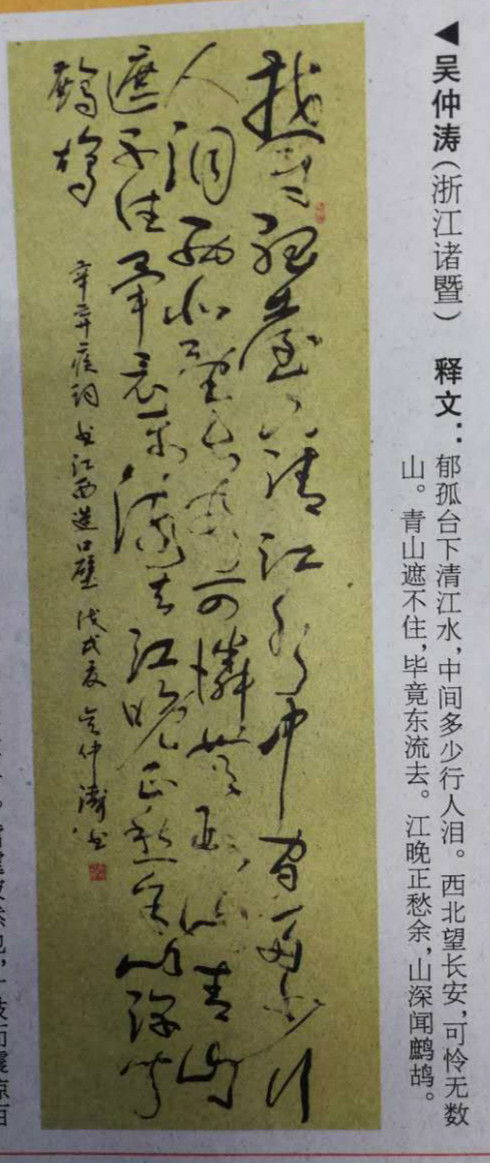 ◀吴仲涛（浙江诸暨） 释文：郁孤台下清江水，中间多少行人泪。西北望长安，可怜无数
山。青山遮不住，毕竟东流去。江晚正愁余，山深闻鹧鸪。
郁孤臺下清江水中间多少行
人泪西北望长安可憐無数山青山
遮不住畢竟东流去江晚正愁余山深闻
鹧鸪
辛弃疾词 书江西造口壁 戊戌夏 吴仲涛书